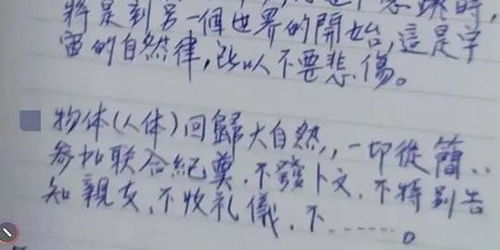 將是到另一個世界的開始,這是宇
宙的自然律,所以不要悲傷。
物体(人体)回歸大自然,,一切從簡..
參加联合紀奠.不發卜文.不特別告
知親友、不收礼儀、不......。